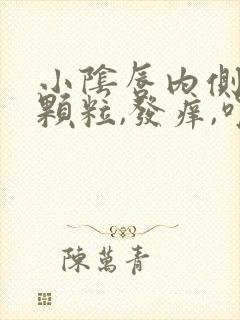 小陰唇內側
顆粒,發痒,
陳萬青